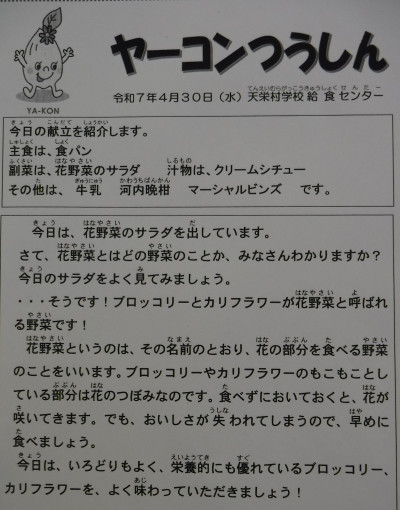 ヤーコンつうしん
YA-KON
令和7年4月30日（水）天栄村学校給食センター
今日の献立を紹介します。
主食は、食パン
副菜は、花野菜のサラダ　汁物は、クリームシチュー
その他は、　牛乳　河内晩柑　マーシャルビンズ　です。
今日は、花野菜のサラダを出しています。
さて、花野菜とはどの野菜のことか、みなさんわかりますか？
今日のサラダをよく見てみましょう。
・・・そうです！ブロッコリーとカリフラワーが花野菜と呼ばれ
る野菜です！
花野菜というのは、その名前のとおり、花の部分を食べる野菜
のことをいいます。ブロッコリーやカリフラワーのもこもことし
ている部分は花のつぼみなのです。食べずにおいておくと、花が
咲いてきます。でも、おいしさが失われてしまうので、早めに
食べましょう。
今日は、いろどりもよく、栄養的にも優れているブロッコリー、
カリフラワーを、よく味わっていただきましょう！